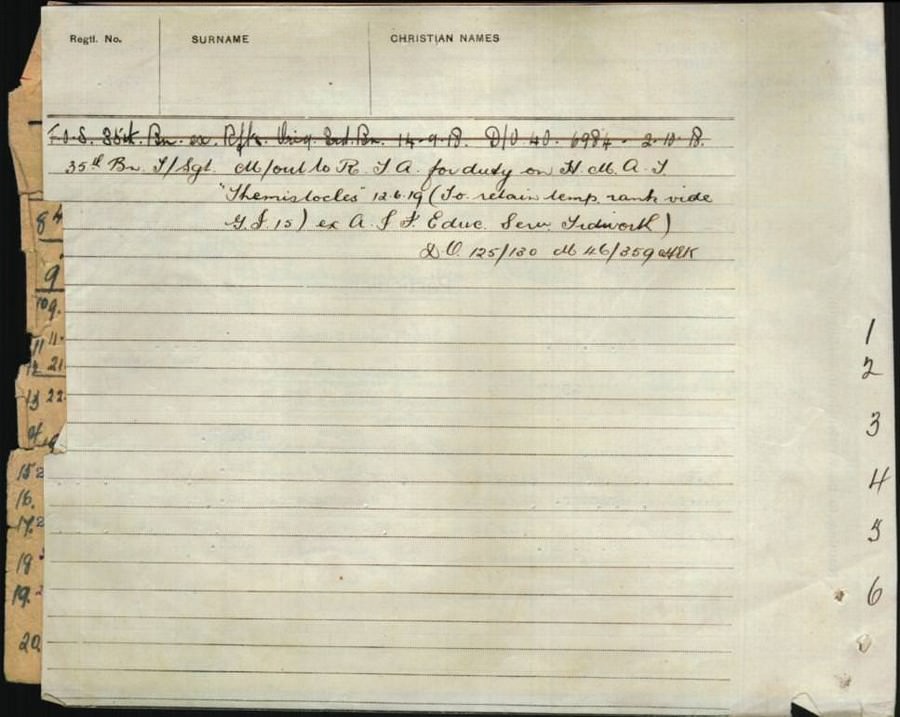 Regtl. No. SURNAME CHRISTIAN NAMES
T.O.S. 35th. Bn. ex Rfts. Orig. 3rd. Bn. 14.9.18. D/O 40. 6984 - 2.10.18.
35th Bn T/Sgt. M/out to R. T A. for duty on H. M. A. T
"Themistocles" 12.6.19 (To retain temp. rank vide
G.I. 15) ex A. I F. Educ. Serv Tidwork)
D.O. 125/130 M 46/359
8
9
9.
11 11.
12 21
13 22
15
16.
17.
18
19.
20
1
2
3
4
5
6